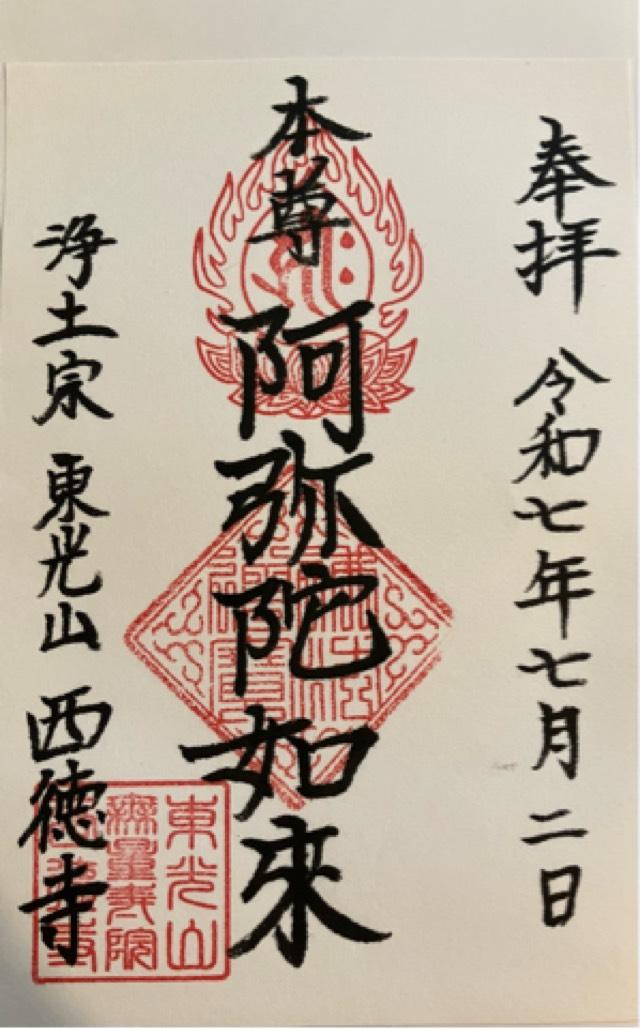 奉拝 令和七年七月二日
本尊 阿弥陀如来
浄土宗 東光山 西徳寺
東光山
無量寿院